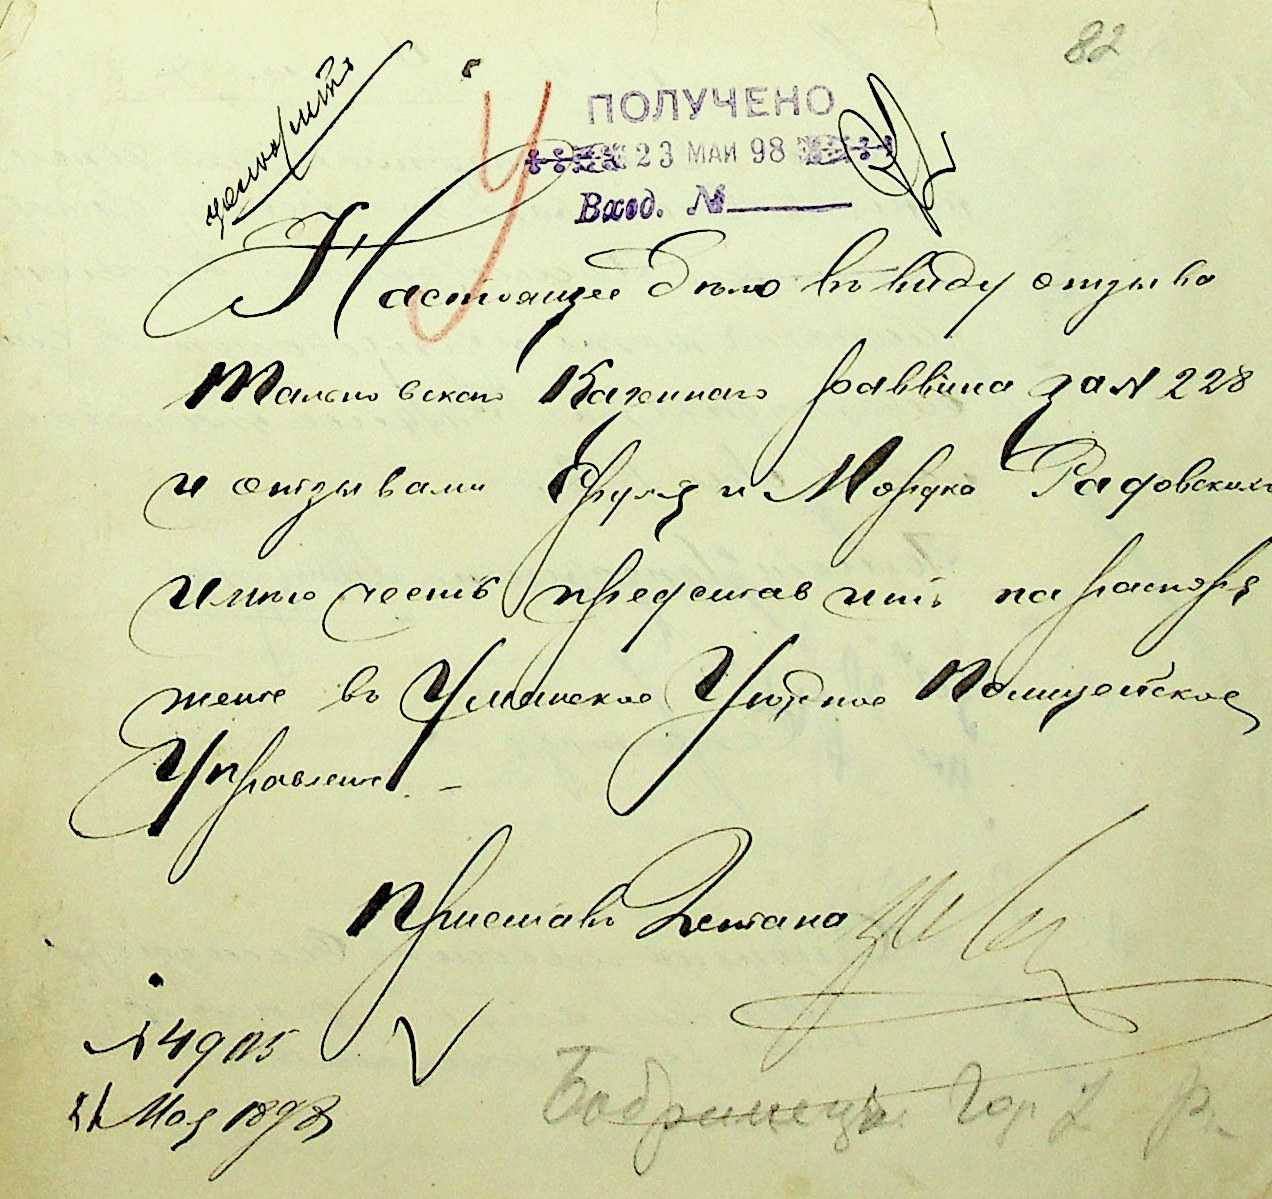 82
ПОЛУЧЕНО
23 МАЙ 98
Вход. №
Настоящее дѣло въ виду отзыва
Тальновскаго Казеннаго раввина за № 228
и отзывами Сруля и Мордко Радовскихъ
имѣю честь представить на распоря
женіе въ Уманское Уѣздное Полицейское
Управленіе. -
Приставъ 2 стана
№ 4905
21 Мая 1898
Бобринецъ. Гор